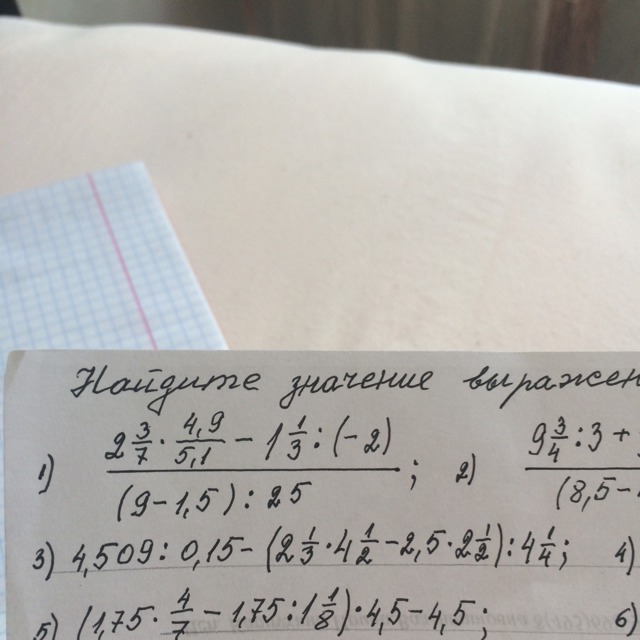 Найдите значение выражен
1) (2 3/7 · 4,9/5,1 − 1 1/3 : (−2)) / ((9−1,5) : 25) ; 2) (9 3/4 : 3 + / (8,5−
3) 4,509 : 0,15− (2 1/3 · 4 1/2 − 2,5 · 2 1/2) : 4 1/4; 4)
5) (1,75 · 4/7 − 1,75 : 1 1/8) · 4,5 − 4,5; 6)